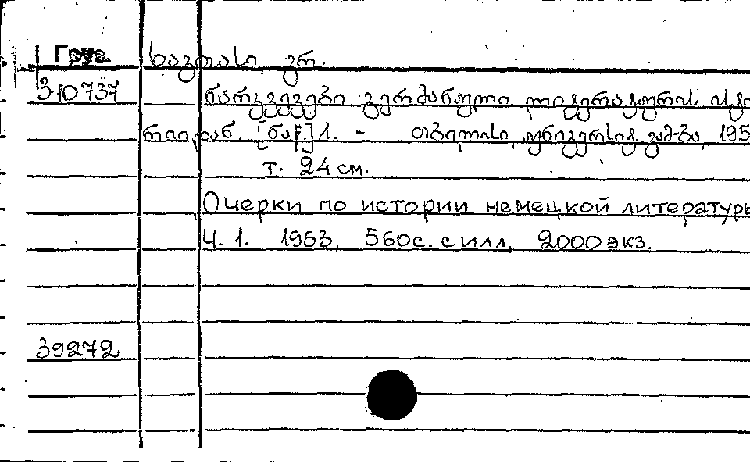 Груз.
ხავთასი გრ.
310737
ნარკვევები გერმანული ლიტერატურის ისტო
რიიდან. [ნაწ] 1. - თბილისი, უნივერსიტ. გამ-ბა, 195
т. 24 см.
Очерки по истории немецкой литературы
Ч. 1. 1953. 560с. с илл. 2000 экз.
39272